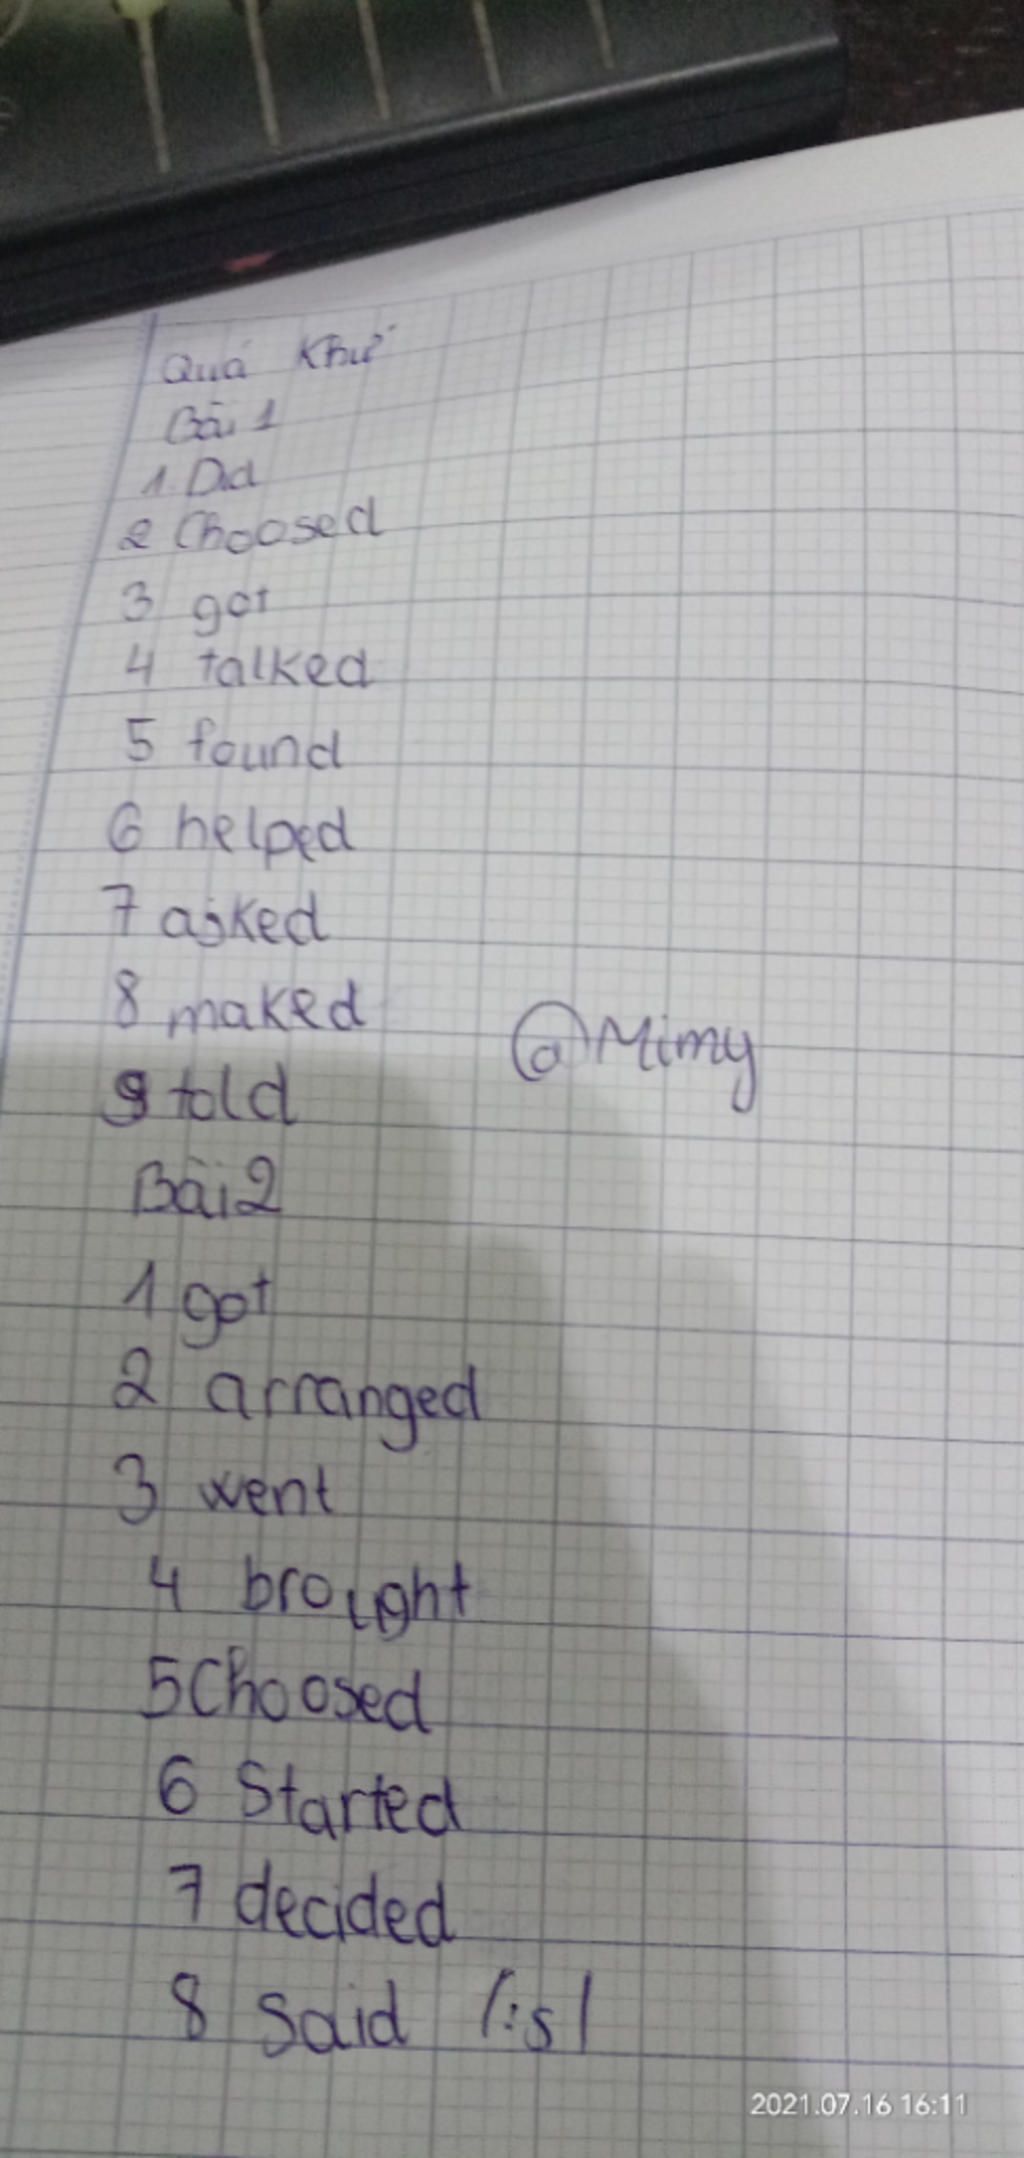 Quá Khứ
Bài 1
1. Did
2 Choosed
3 got
4 talked
5 found
6 helped
7 asked
8 maked
@Mimy
9 told
Bài 2
1 got
2 arranged
3 went
4 brought
5 Choosed
6 Started
7 decided
8 Said
2021.07.16 16:11